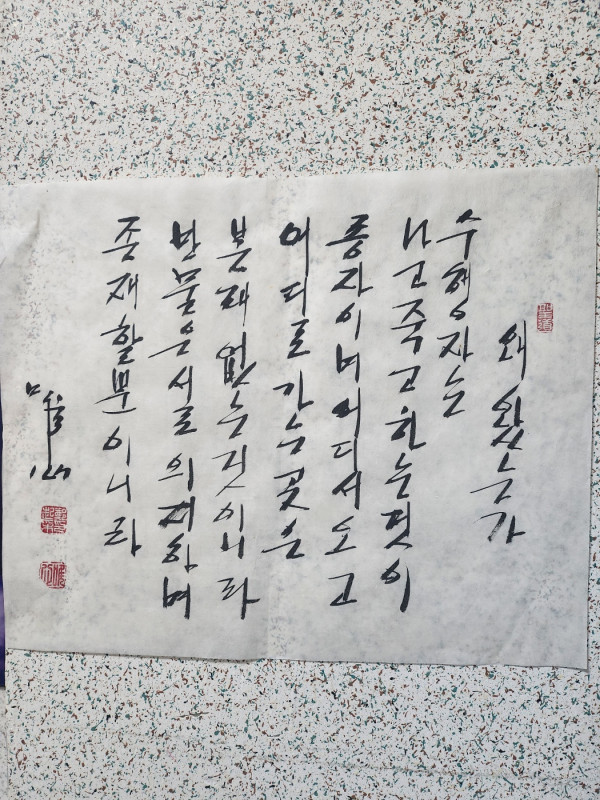 왜 왔는가
수행자는
나고죽고하는것이
어디서오고
어디로가는곳은
본래없는것이니라
만물은서로의재하며
존재할뿐이니라